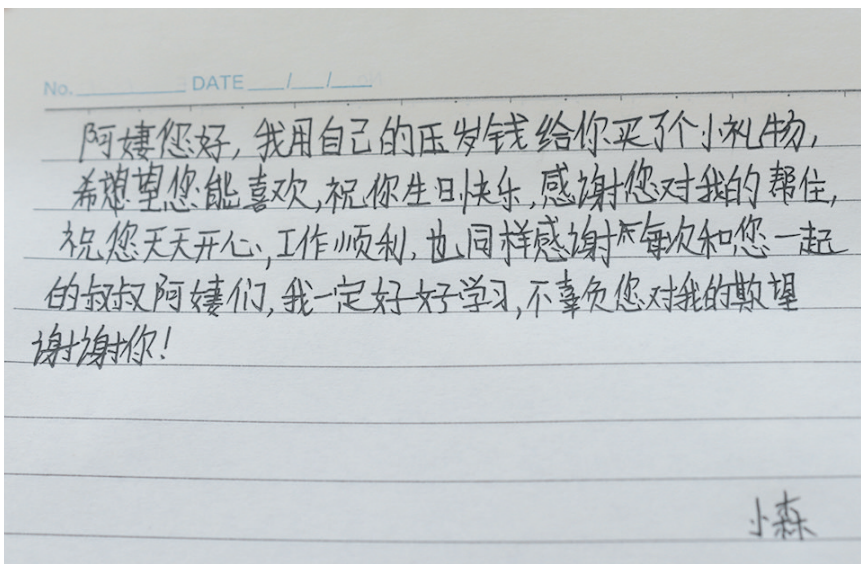 No. DATE / /
阿姨您好,我用自己的压岁钱给你买了个小礼物,
希想望您能喜欢,祝你生日快乐,感谢您对我的帮住,
祝您天天开心,工作顺利,也同样感谢每次和您一起
的叔叔阿姨们,我一定好好学习,不辜负您对我的欺望
谢谢你!
小森